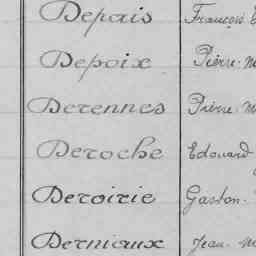 Depais François
Depoix Pierre
Derennes Pierre
Deroche Edouard
Deroirie Gaston
Derniaux Jean